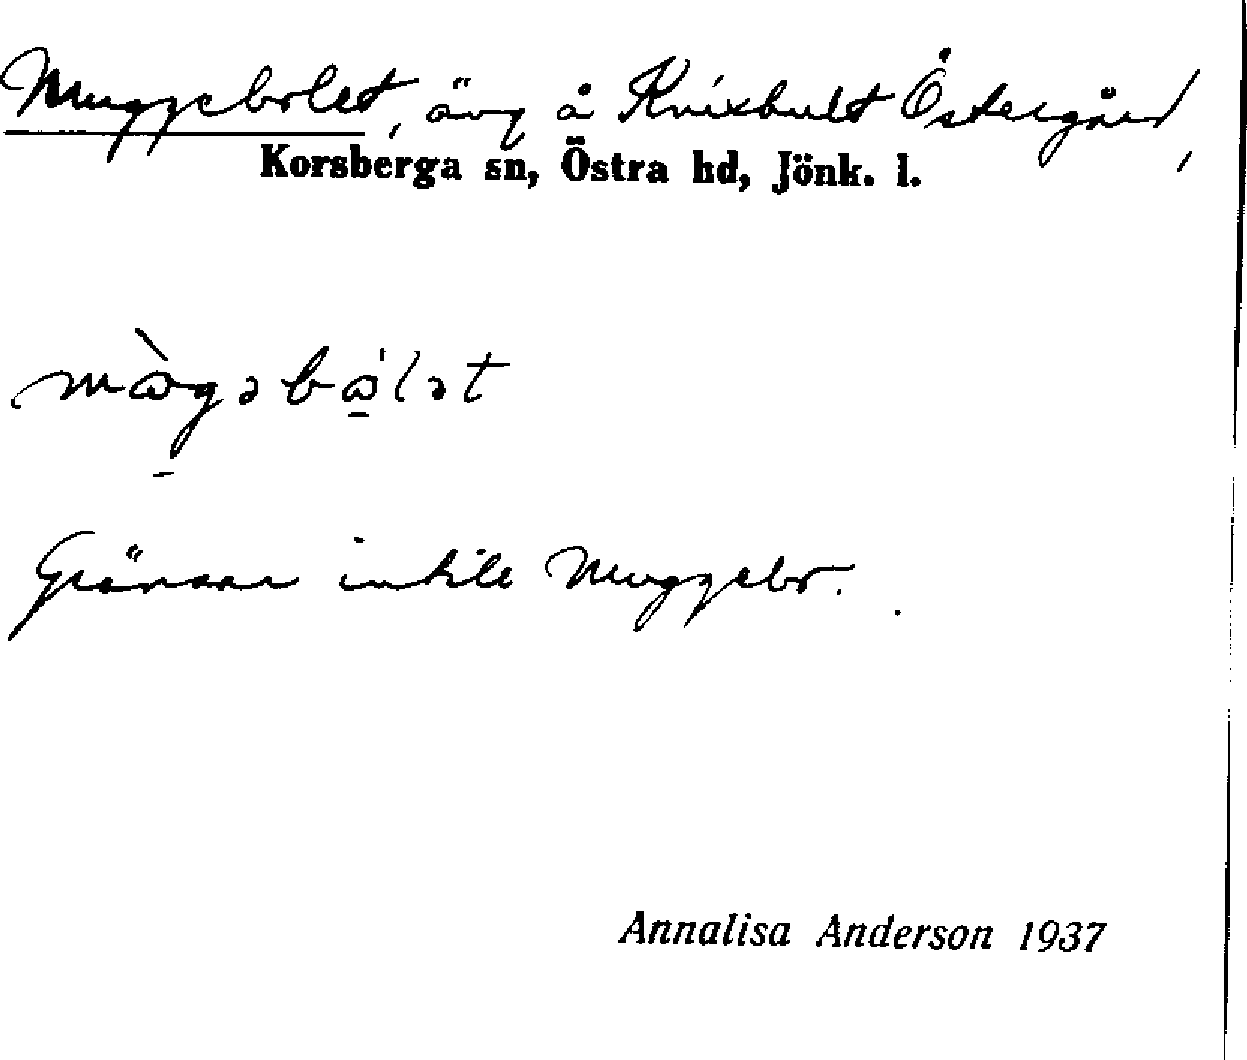 Muggebolet, äng å Knixhult Östergård,
Korsberga sn, Östra hd, Jönk. l.
Gränsar intill Muggebo.
Annalisa Anderson 1937